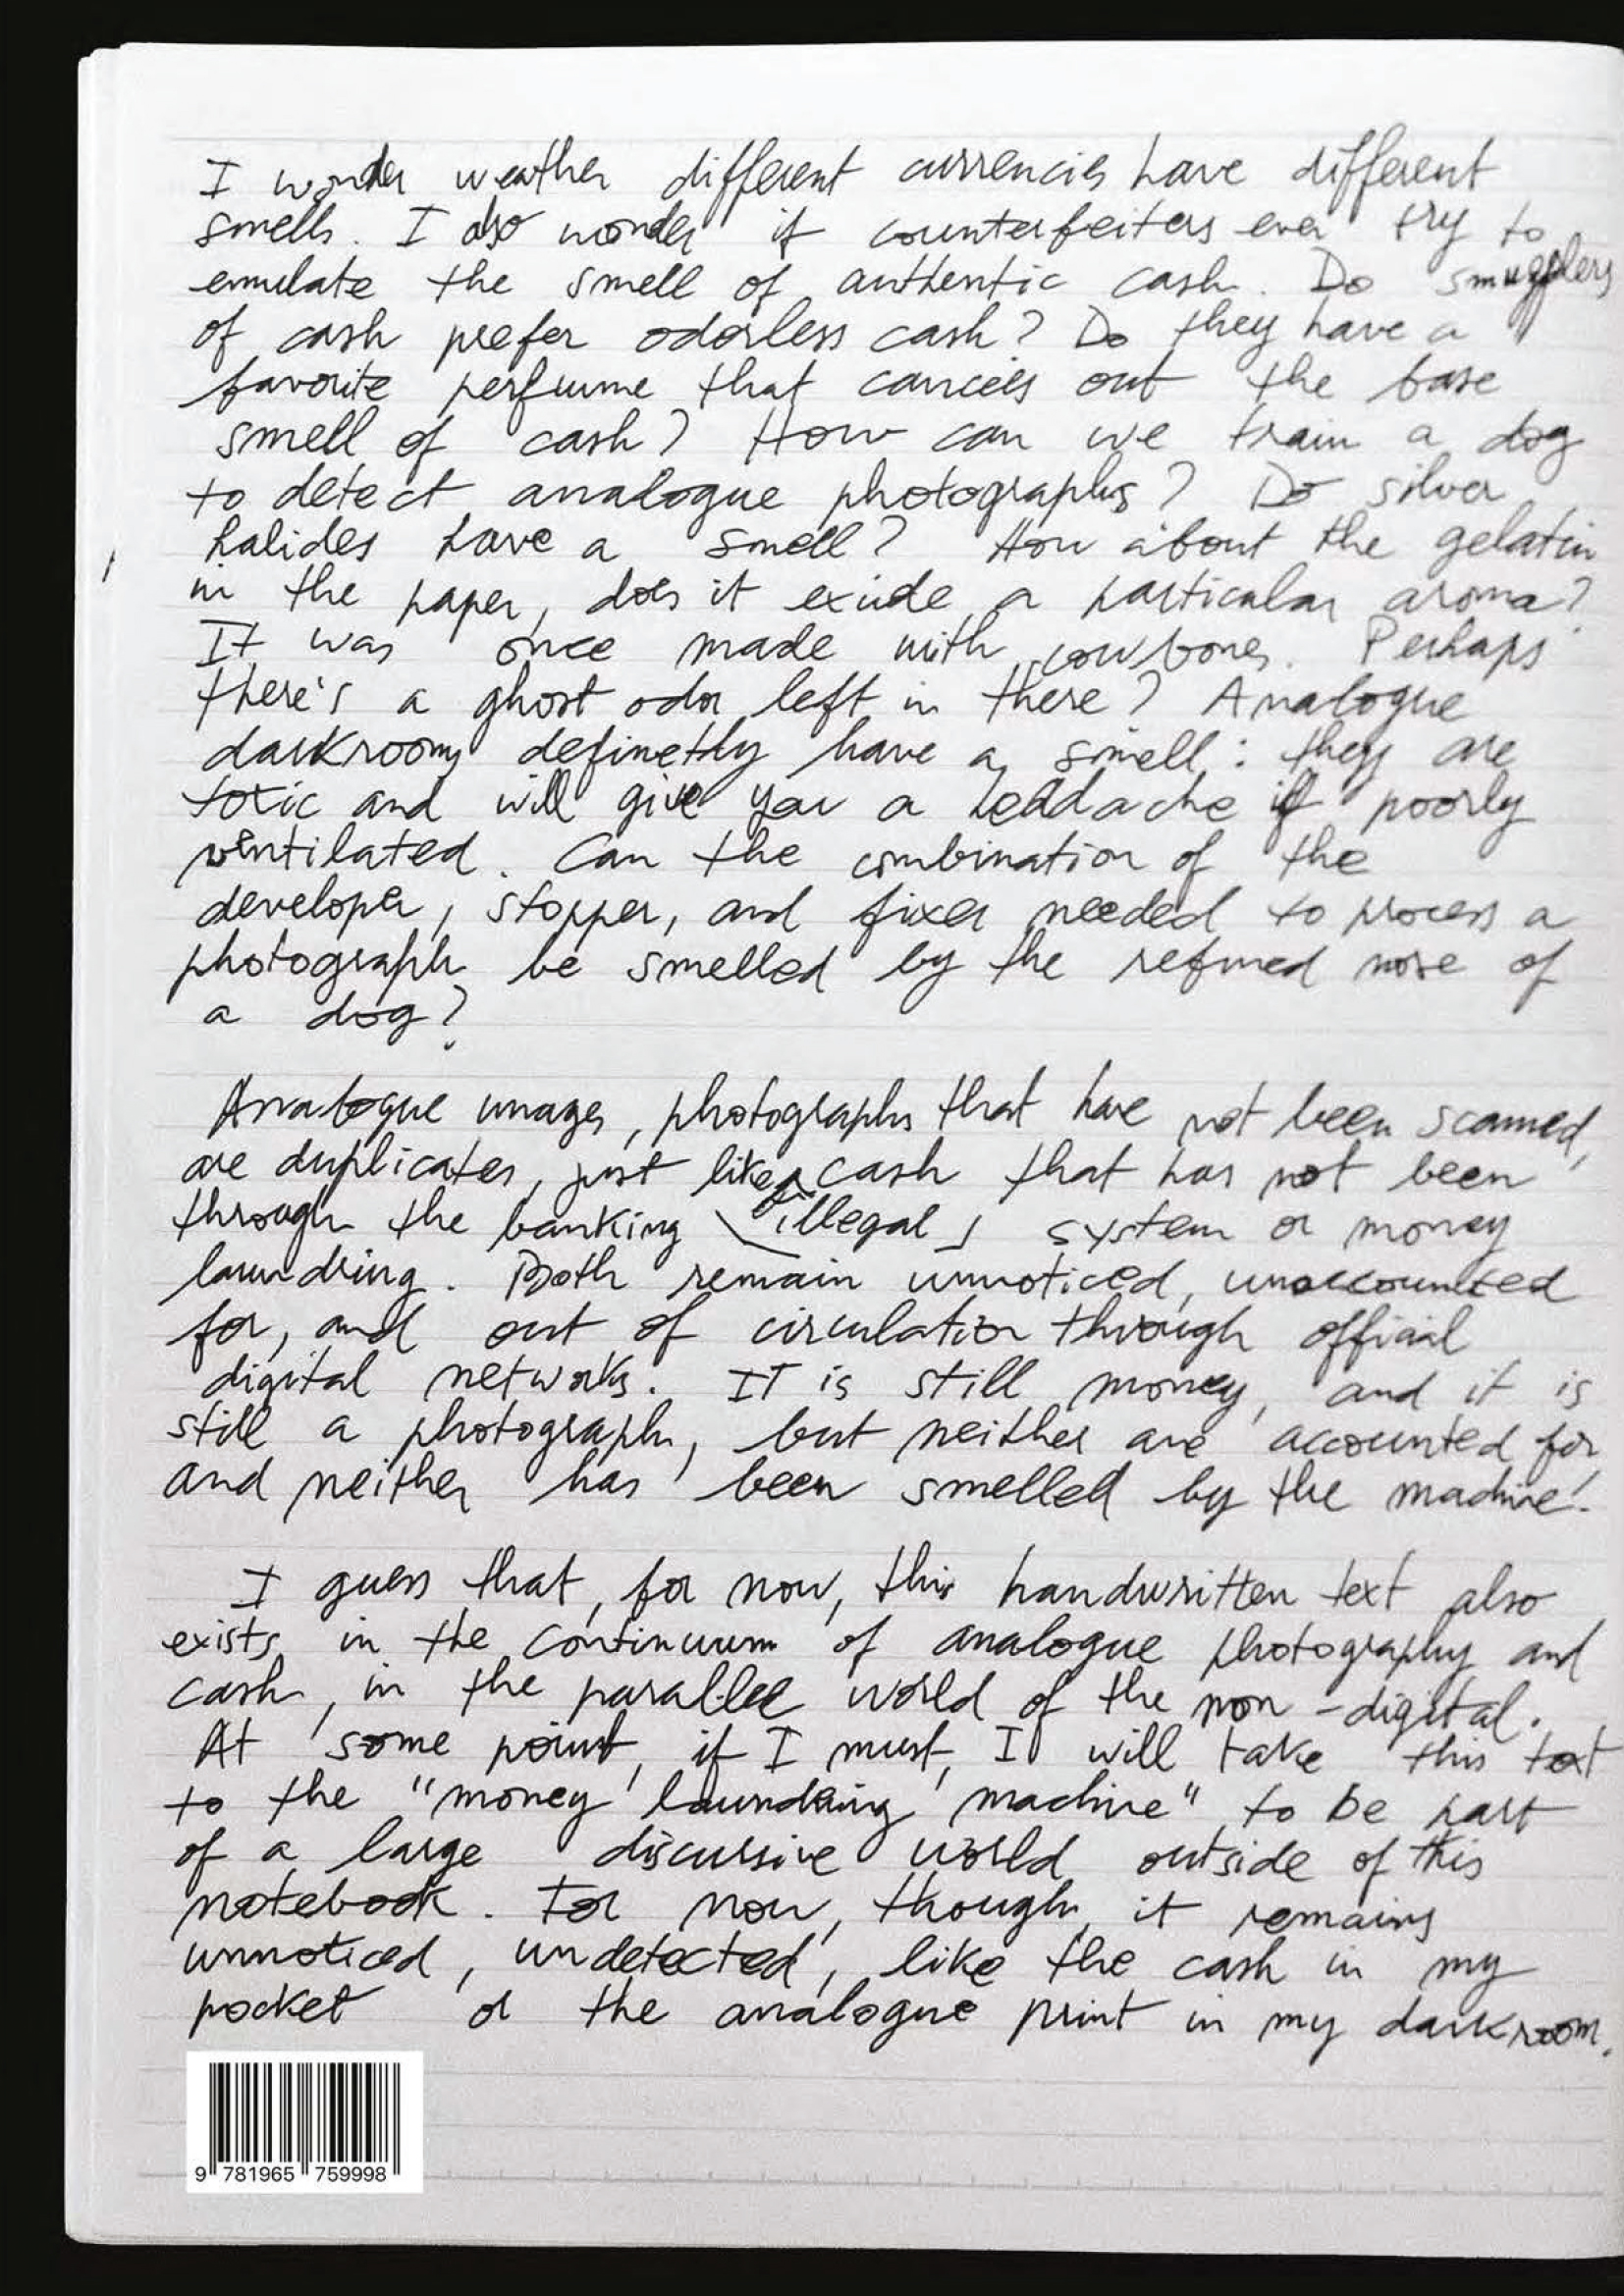 I wonder weather different currencies have different
smells. I also wonder if counterfeiters ever try to
emulate the smell of authentic cash. Do smugglers
of cash prefer odorless cash? Do they have a
favorite perfume that cancels out the base
smell of cash? How can we train a dog
to detect analogue photographs? Do silver
halides have a smell? How about the gelatin
in the paper, does it exude a particular aroma?
It was once made with cow bones. Perhaps
there's a ghost odor left in there? Analogue
darkrooms definetly have a smell: they are
toxic and will give you a headache if poorly
ventilated. Can the combination of the
developer, stopper, and fixer needed to process a
photograph be smelled by the refined nose of
a dog?
Analogue images, photographs that have not been scanned,
are duplicates, just like cash that has not been
through the banking (illegal) system or money
laundring. Both remain unnoticed, unaccounted
for, and out of circulation through official
digital networks. IT is still money, and it is
still a photograph, but neither are accounted for
and neither has been smelled by the machine!
I guess that, for now, this handwritten text also
exists in the continuum of analogue photography and
cash, in the parallel world of the non-digital.
At some point, if I must, I will take this text
to the "money laundring machine" to be part
of a large discursive world outside of this
notebook. For now, though, it remains
unnoticed, undetected, like the cash in my
pocket or the analogue print in my darkroom.
9 781965 759998